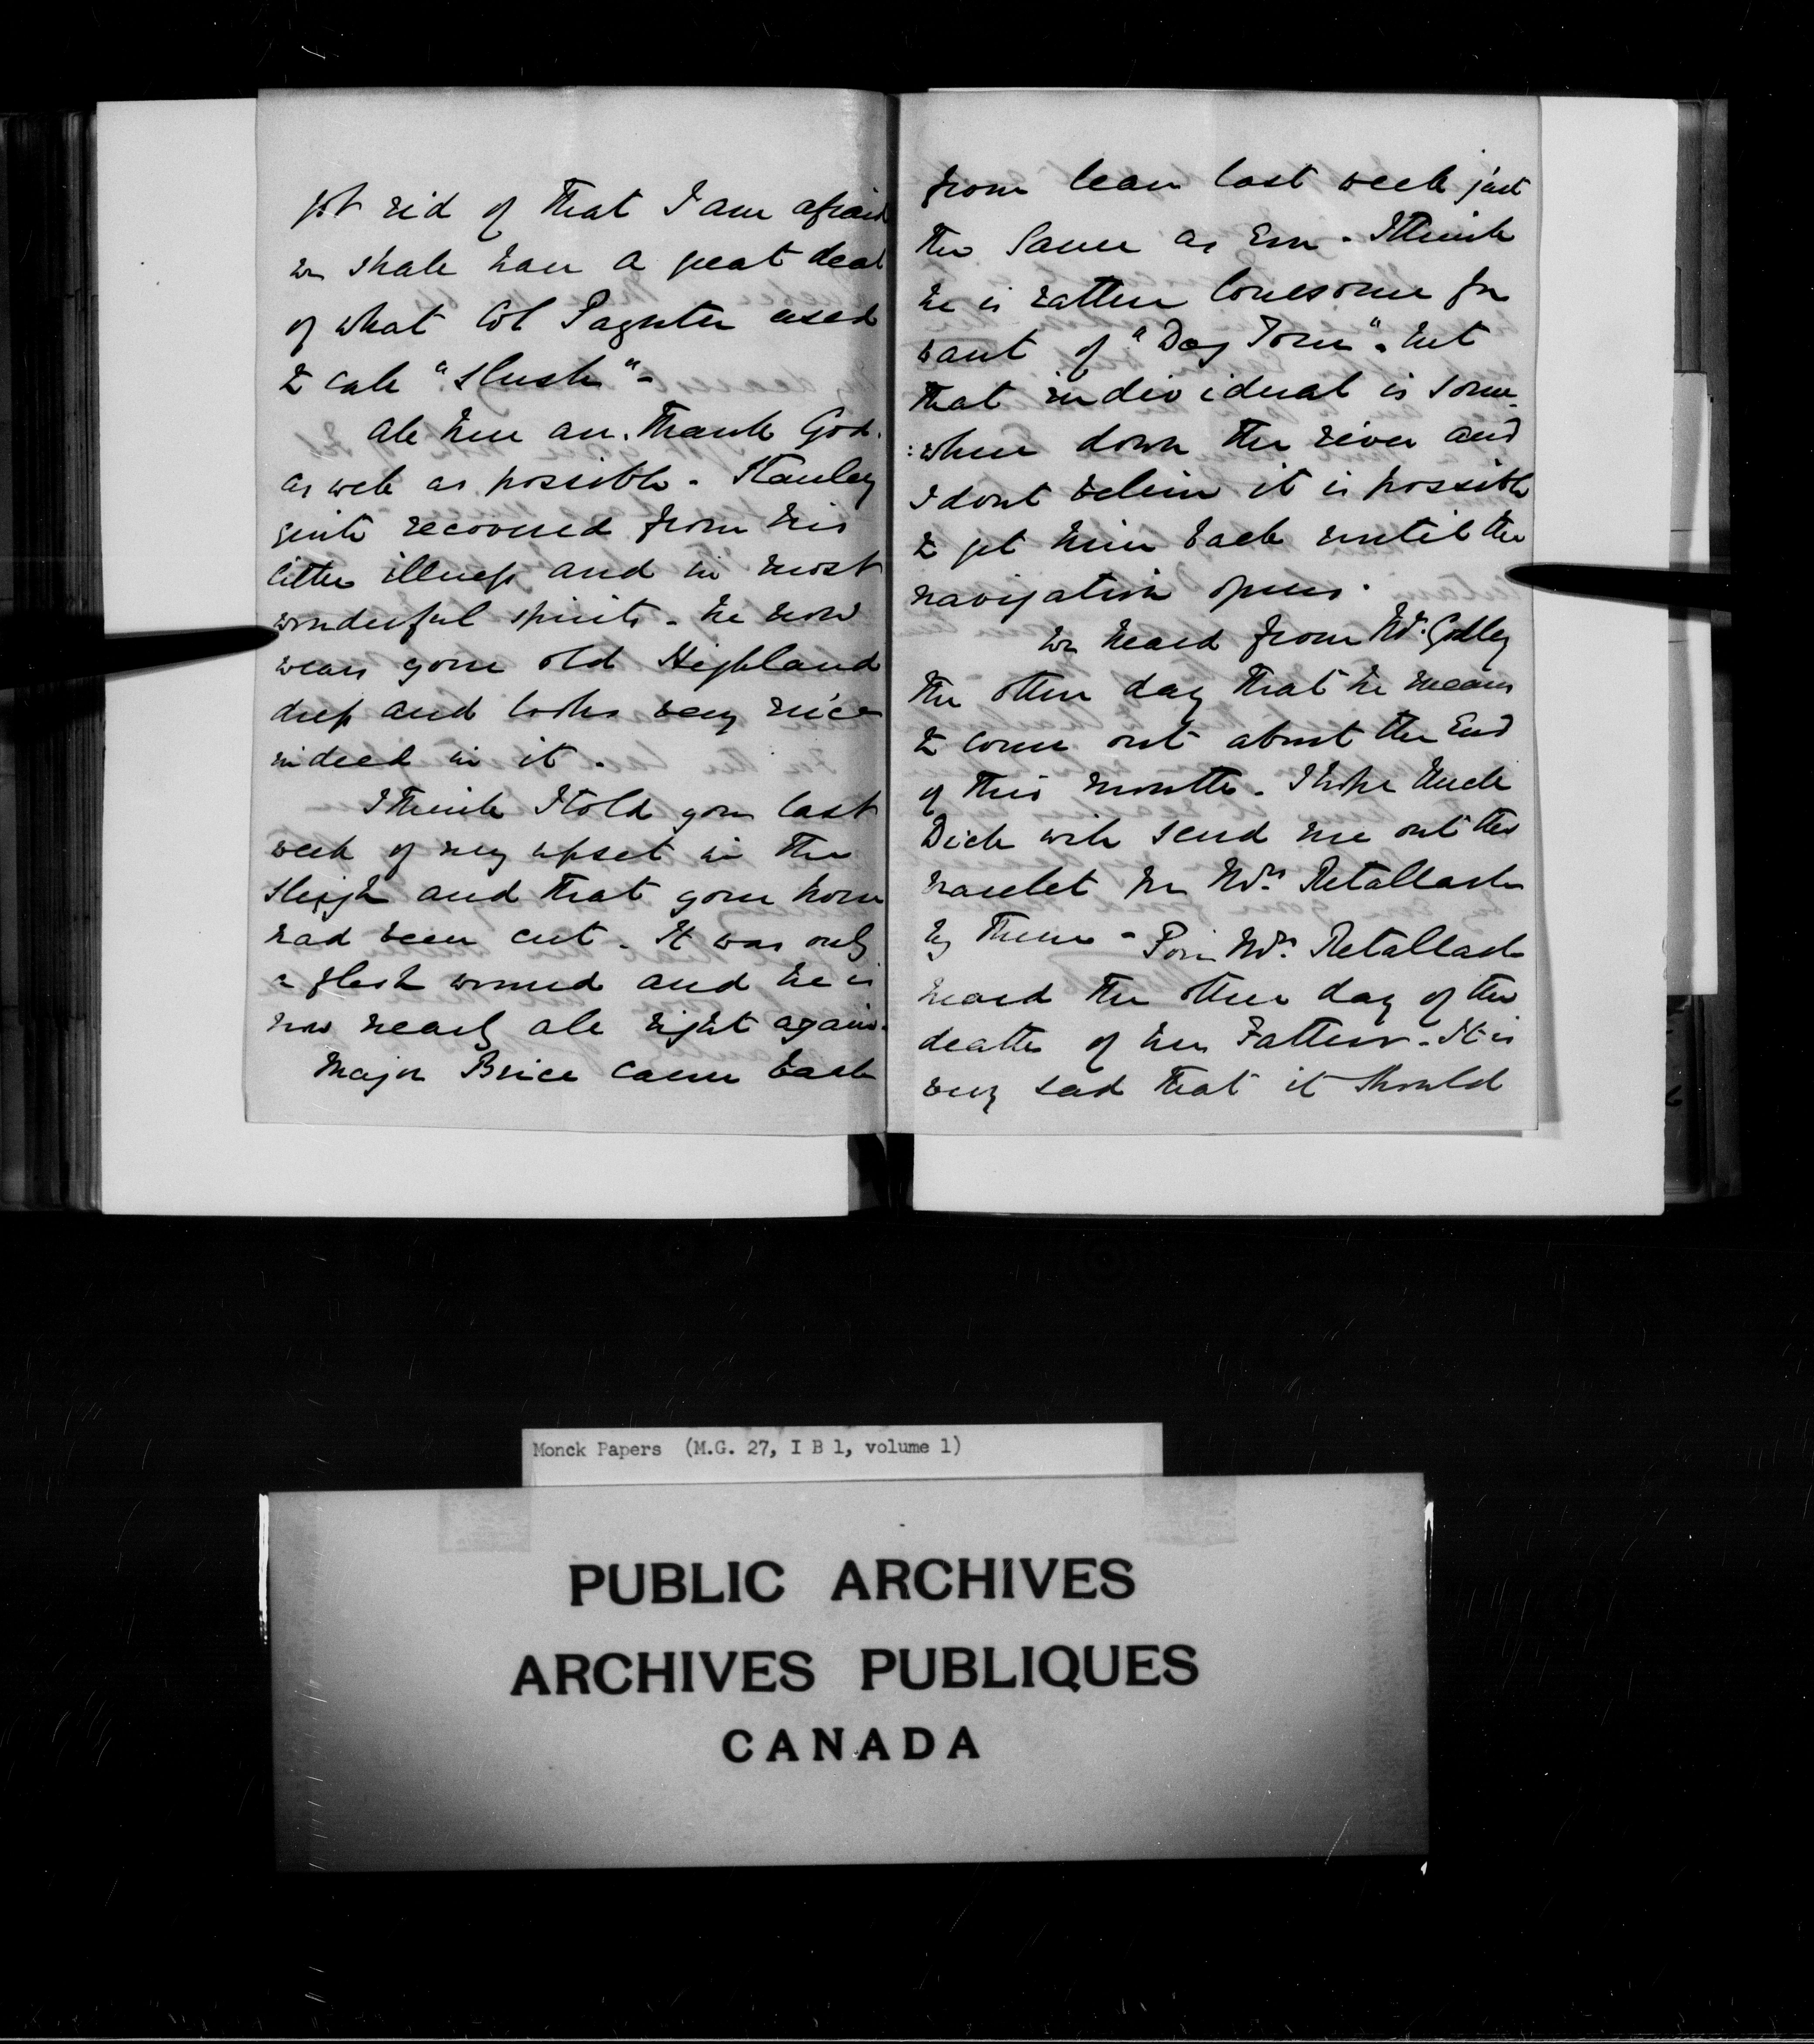 got rid of that I am afraid
we shall have a great deal
of what Col Paynter used
to call "slush" -
All here are, thank God,
as well as possible - Stanley
quite recovered from his
little illness and in most
wonderful spirits - he now
wears your old Highland
dress and looks very nice
indeed in it.
I think I told you last
week of my upset in the
sleigh and that your horse
had been cut. It was only
a flesh wound and he is
now nearly all right again.
Major Brice came back
from leave last week just
the same as ever - I think
he is rather lonesome for
want of "Dog Tom" - but
that individual is some-
:where down the river and
I dont believe it is possible
to get him back until the
navigation opens.
We heard from Mr. Godley
the other day that he means
to come out about the End
of this month. I hope Uncle
Dick will send me out the
for Mrs Retallack
by them - Poor Mrs Retallack
heard the other day of the
death of her Father - It is
very sad that it should
Monck Papers (M.G. 27, I B 1, volume 1)
PUBLIC ARCHIVES
ARCHIVES PUBLIQUES
CANADA